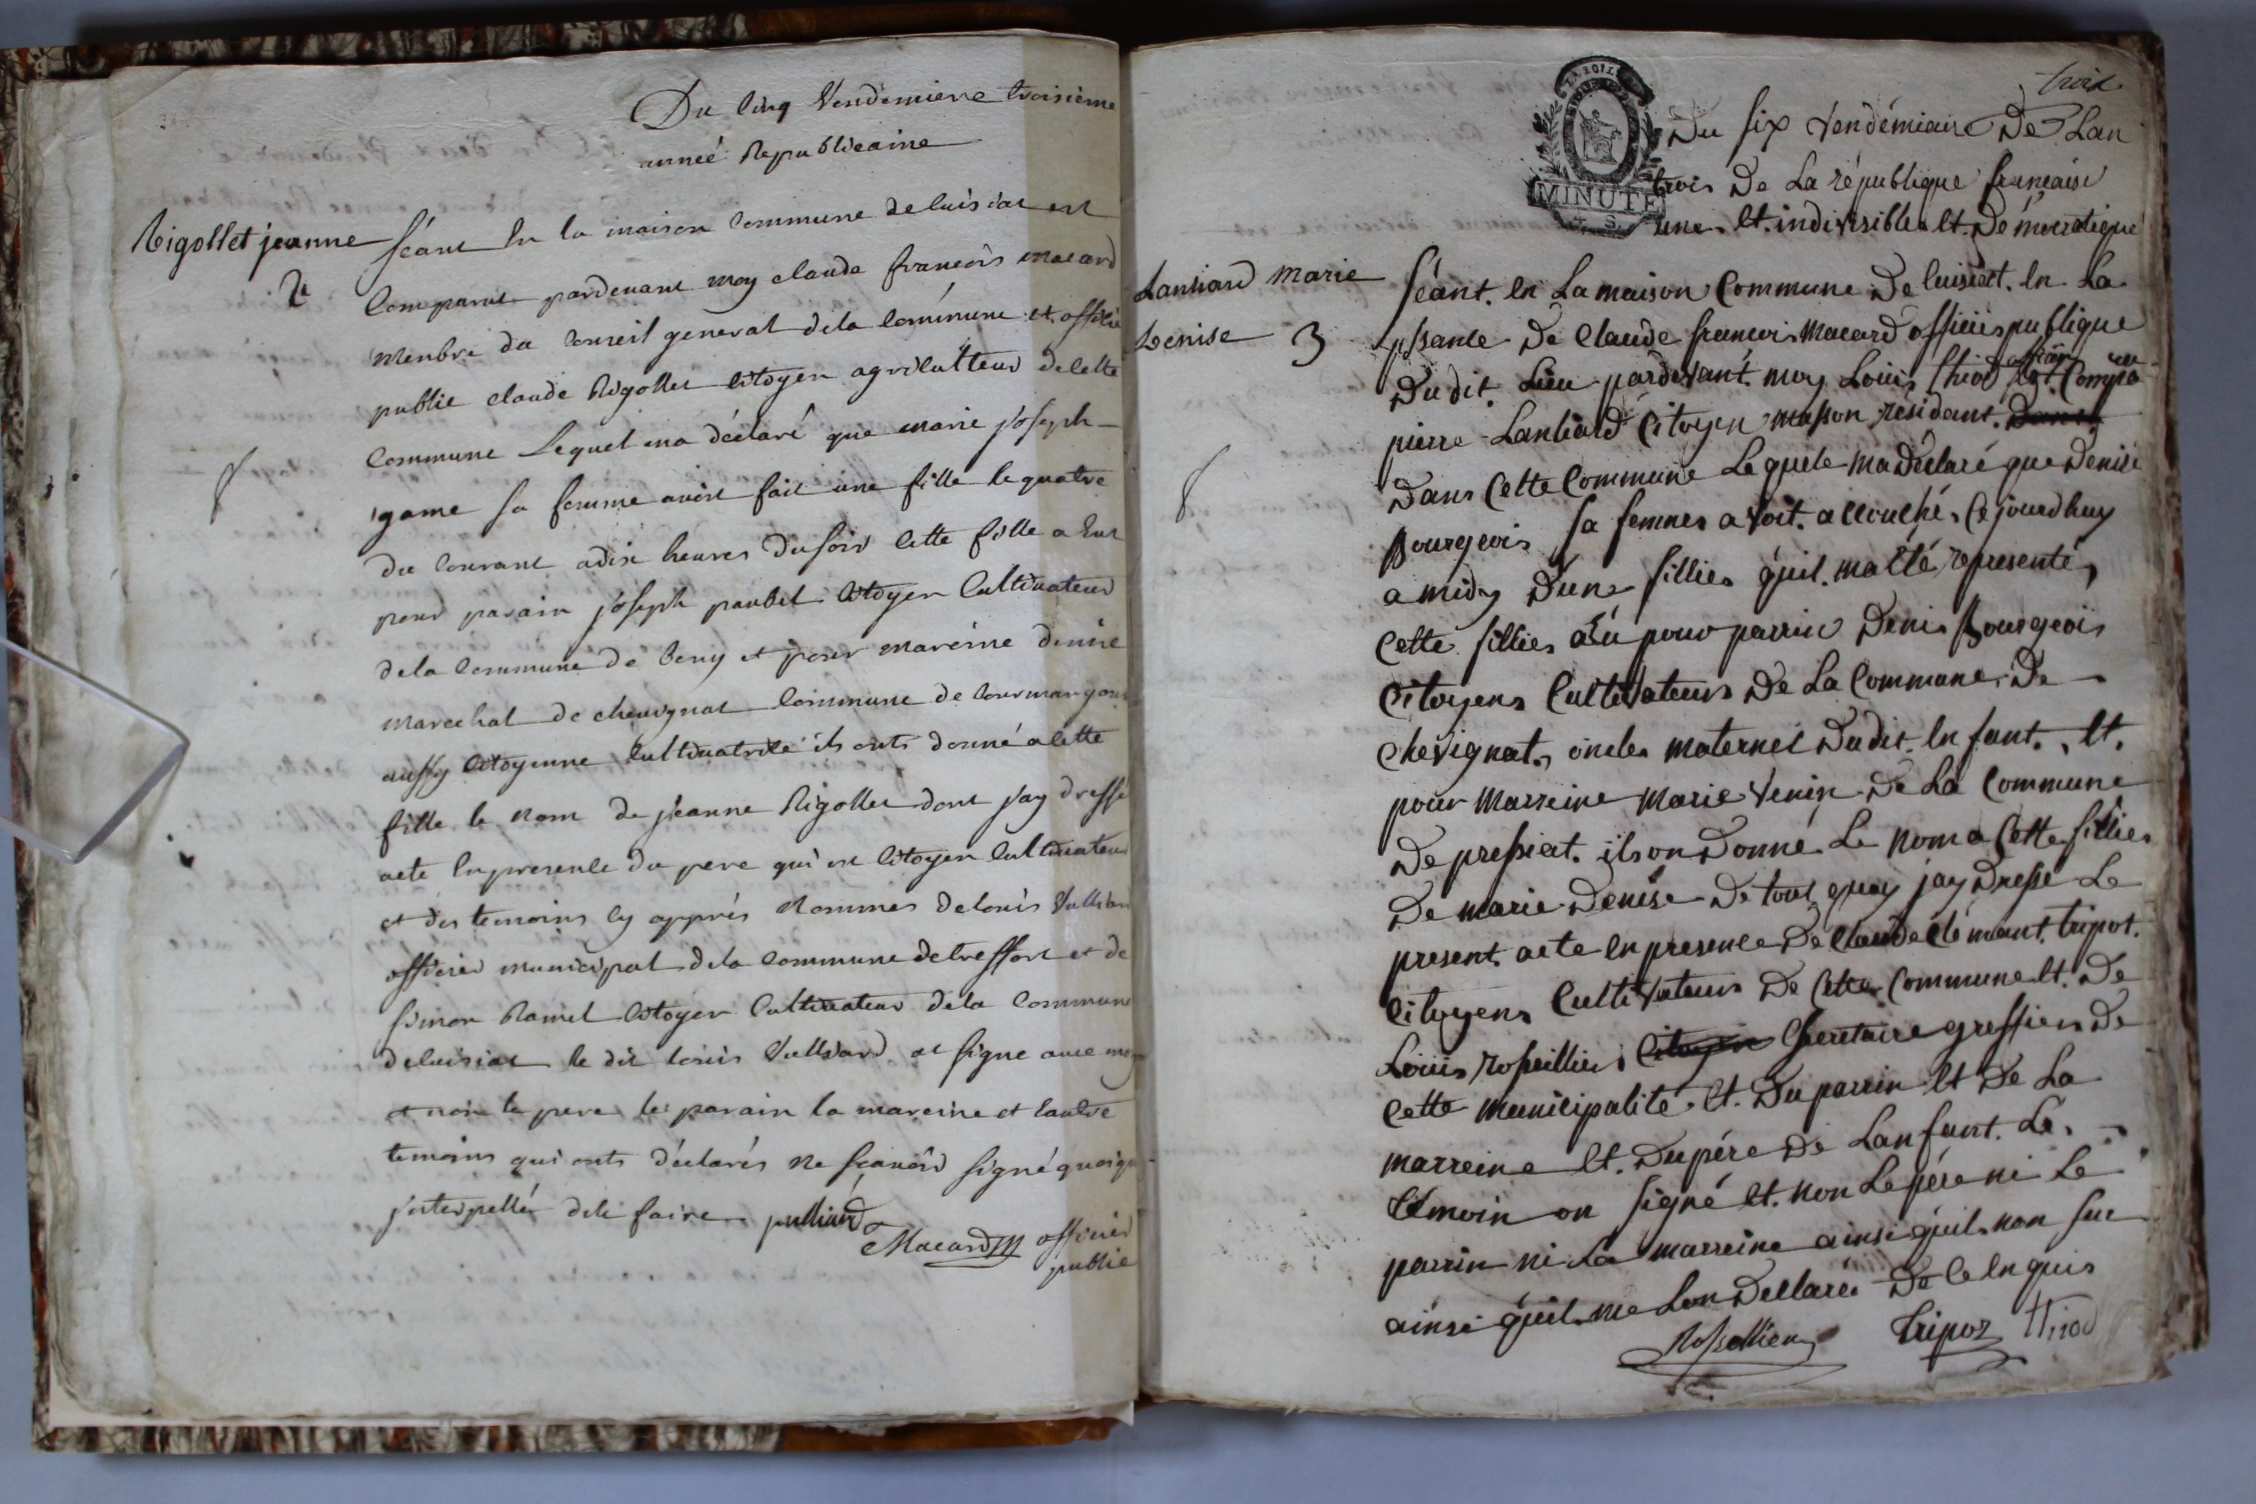 Du Cinq Vendemiere troisieme
année Republicaine
Rigollet jeanne
2
séant en la maison Commune de luisiat est
Comparut pardevant moy claude francois macard
menbre du Conseil general de la Commune et officié
public claude Rigollet Citoyen agriculteur de cette
Commune Lequel ma déclaré que marie joseph
game sa femme avoit fait une fille le quatre
du Courant a dix heures du soir Cette fille a Eut
pour parain joseph paubel Citoyen Cultivateur
de la Commune de beny et pour mareine denise
marechal de chevignat Commune de Courmangoux
aussy Citoyenne Cultivatrice ils onts donné a Cette
fille le nom de jeanne Rigollet dont j'ay dressé
acte En presence du pere qui est Citoyen Cultivateur
et des temoins Cy apprés Nommes de louis Vulliard
officier municipal de la Commune de treffort et de
simon Ramel Citoyen Cultivateur de la Commune
de luisiat le dit louis Vulliard at signé avec moy
et non le pere le parain la mareine et lautre
temoins qui onts déclarés ne scavoir signé quoique
j'nterpellés de le faire vulliard
Macard officier
public
trois
MINUTE
Du six vendémiaire De Lan
trois De La république française
une Et indivisible Et Démocratique
Lanliard Marie
Denise 3
séant En La maison Commune De luisiat En La
Epsance De Claude francois Macard officiers publique
Dudit Lieu pardevant moy Louis thiod officier Est Compa ru
pierre Lanliard Citoyen masson résidant Dans
Dans Cette Commune Le quele ma déclaré que Denise
Bourgeois sa femmes avoit accouché Cejourdhuy
a midy D'une fillies qu'il ma été représenté
Cette fillies a Eu pour parrin Denis Bourgeois
Citoyens Cultivateurs De La Commune De
Chevignat oncles maternel Dudit Enfant Et
pour Marreine Marie Venin De La Commune
De pressiat ils on Donné Le nom a Cette fillies
De marie Denise De tout quoy jay Dressé Le
present acte En presence De Claude Clémant tripot
Citoyens Cultivateurs De Cette Commune Et De
Louis rossellier Citoyen Secretaire greffiers De
Cette municipalité Et Du parrin Et De La
marreine Et Du pére De Lanfant Le
témoin on signé Et non Le pére ni Le
parrin ni La marreine ainsi quil non sue
ainsi quil me Lon Dellaré De Ce Enquis
Rossellier Tripoz thiod